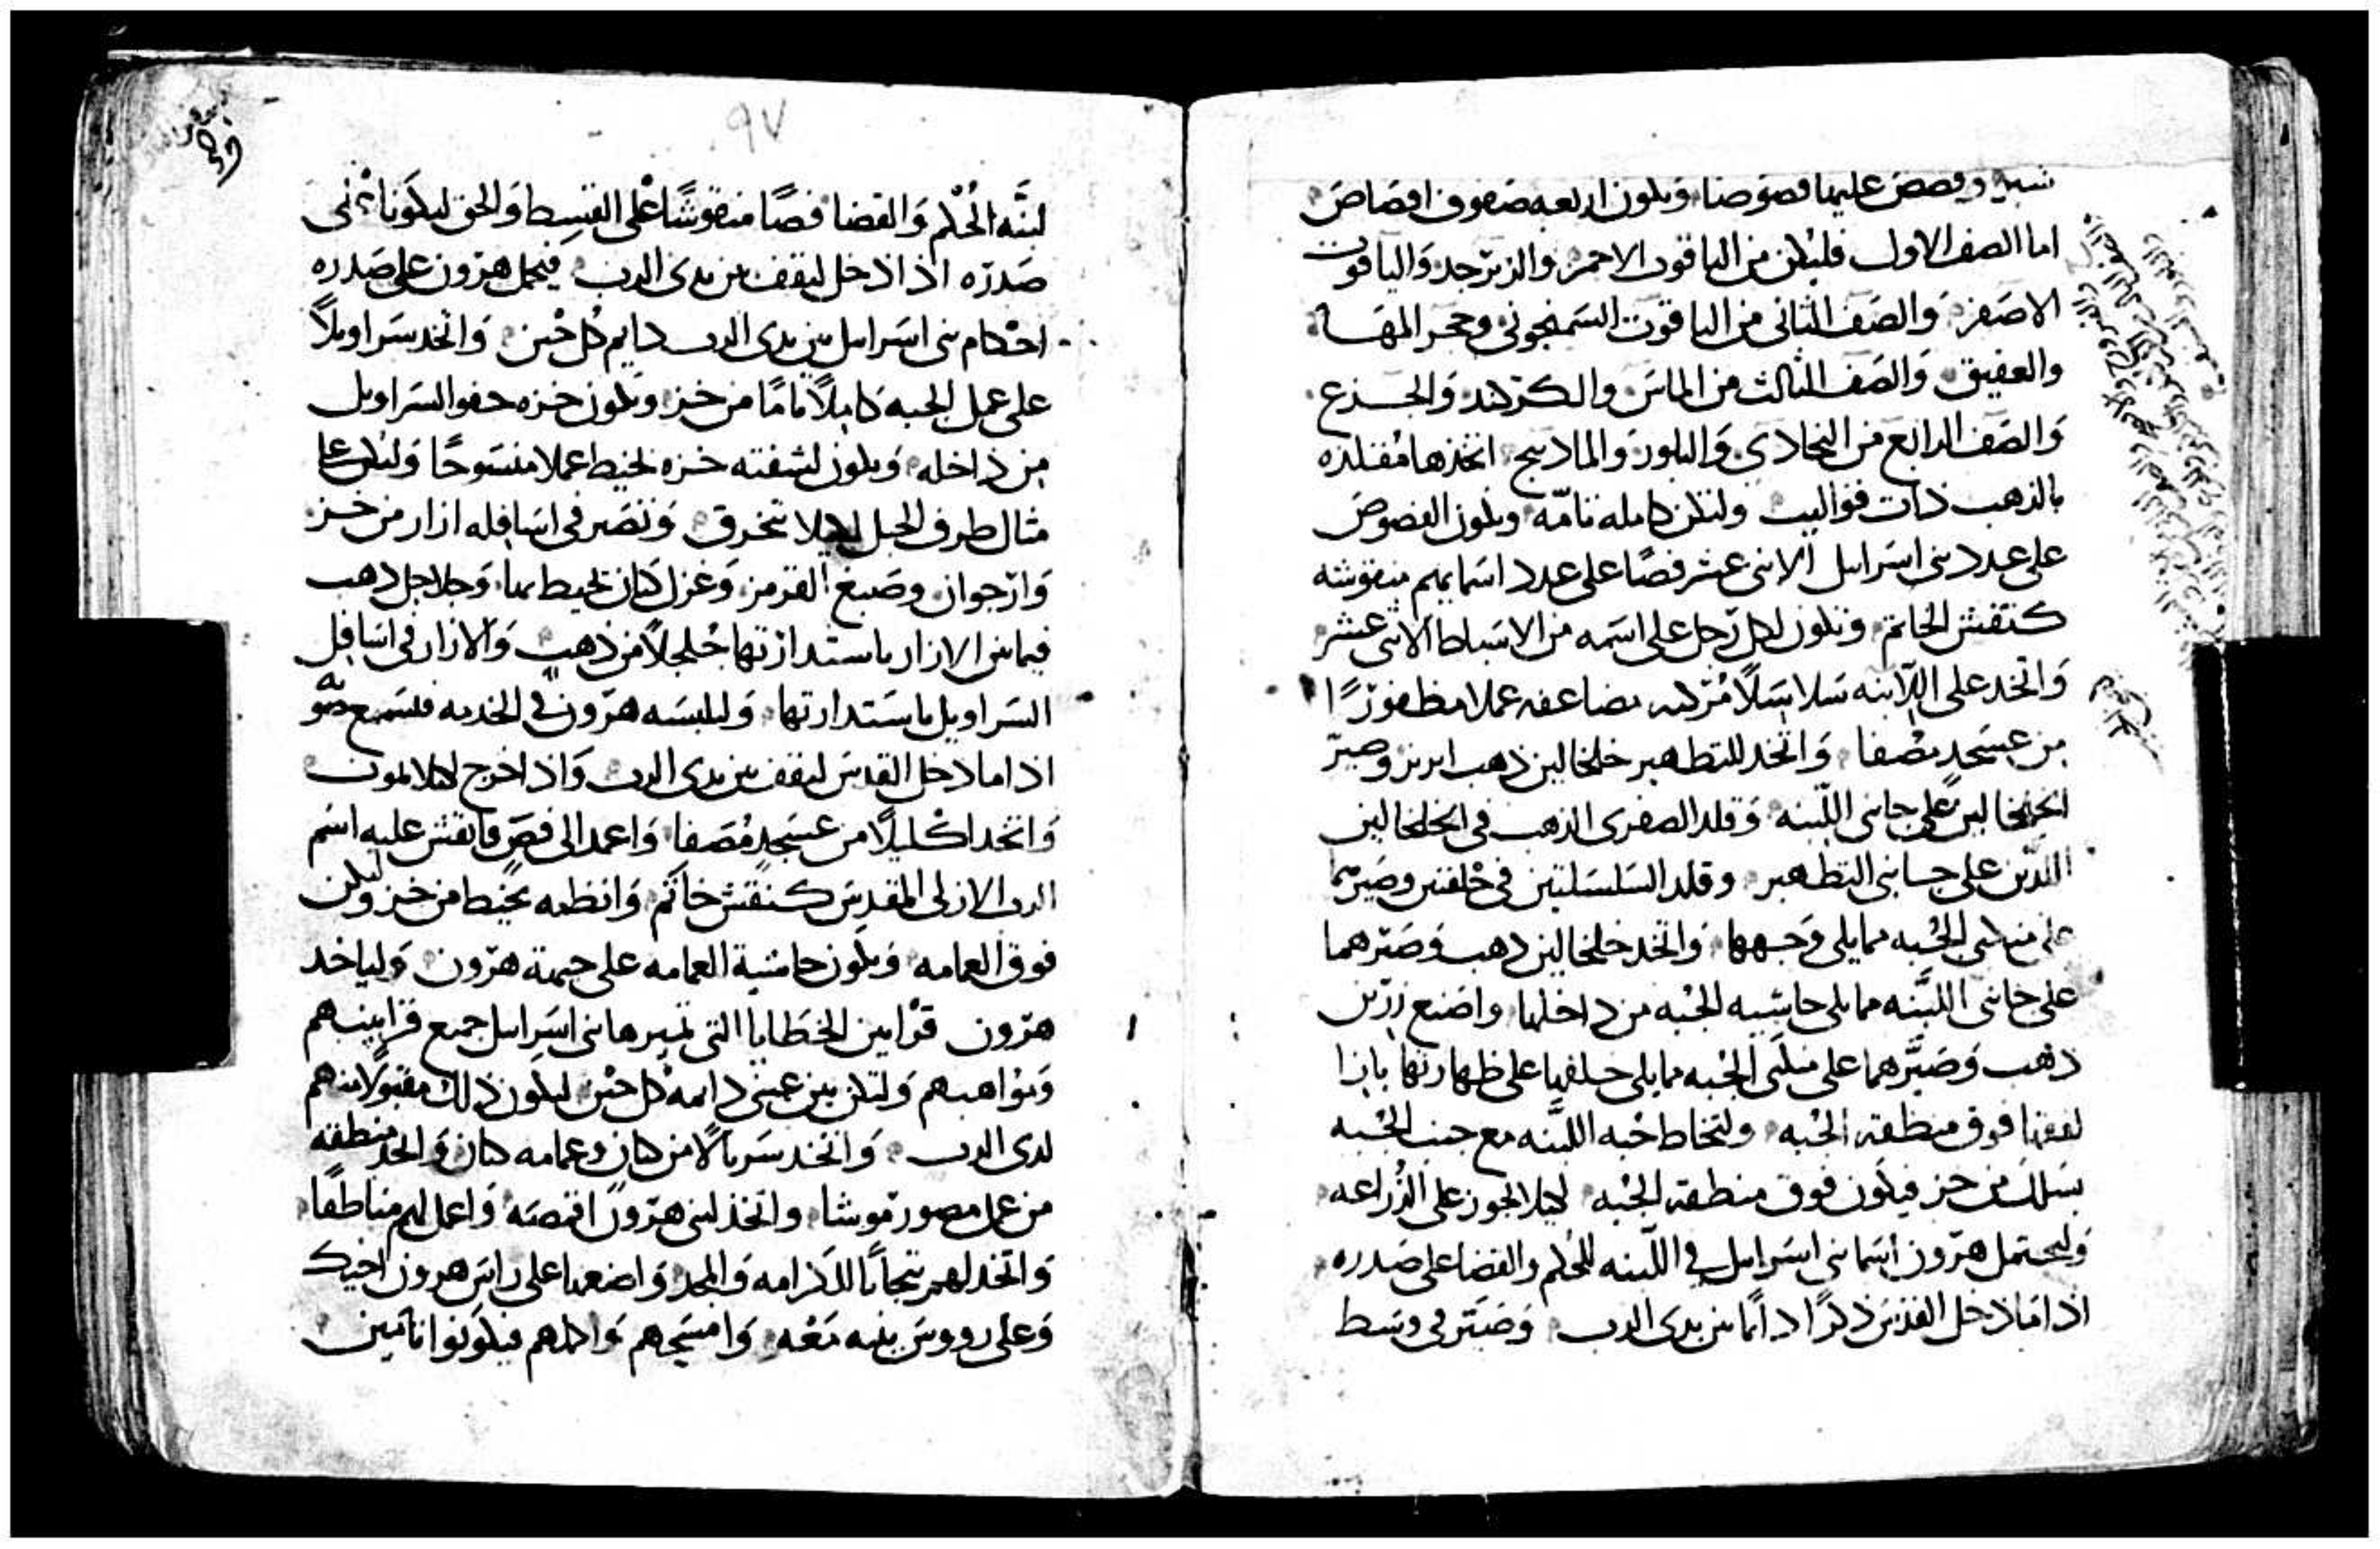 شبر وفصص عليها فصوصا ويكون اربعه صفوف افصاص
اما الصف الاول فليكن من الياقوت الاحمر والزبرجد والياقوت
الاصفر والصف الثاني من الياقوت السمنجوني وحجر المها
والعقيق والصف الثالث من الماس والكركند والجزع
والصف الرابع من البجادي والبلور والمادبنج اتخذها مقلده
بالذهب ذات قواليب ولتكن كامله تامه ويكون الفصوص
على عدد بني اسرايل الاثني عشر فصا على عدد اسمايهم منقوشه
كنقش الخاتم ويكون لكل رجل على اسمه من الاسباط الاثني عشر
واتخد على اللابنه سلاسلا مركبه مضاعفه عملا مظفورا
من عسجد مصفا واتخد للتطهير خلخالين ذهب ابريز وصير
الخلخالين على جانبي اللبنه وقلد الصفرى الذهب في الخلخالين
اللدين على جانبي التطهير وقلد السلسلتين في حلقتين وصيرهما
على منكبي الجبه مما يلي وجهها واتخد خلخالين ذهب وصيرهما
على جانبي اللبنه مما يلي حاشيه الجبه من داخلها واصنع زرين
ذهب وصيرهما على منكبي الجبه مما يلي خلفها على ظهارتها بازا
لفقها فوق منطقه الجبه ولتخاط جبه اللبنه مع جنب الجبه
بسلك من خز فيكون فوق منطقه الجبه ليلا تجوز على الدراعه
وليحتمل هرون اسما بني اسرايل في اللبنه للحكم والقضا على صدره
اذا ما دخل القدس ذكرا دايما بين يدي الرب وصير في وسط
٩٧
لبنه الحكم والقضا فصا منقوشا على القسط والحق ليكونا على
صدره اذا دخل ليقف بين يدي الرب فيحمل هرون على صدره
احكام بني اسرايل بين يدي الرب دايم كل حين واتخد سراويلا
على عمل الجبه كاملا تاما من خز ويكون خزه حقو السراويل
من داخله ويكون لشفته خزه تخيط عملا منسوجا وليكن على
مثال طرف الجبل ليلا تنخرق وتصير في اسافله ازار من خز
وارجوان وصبغ القرمز وغزل كتان تخيط بها وجلاجل ذهب
فيما بين الازار باستدارتها جلجلا من ذهب والازار في اسافل
السراويل باستدارتها وليلبسه هرون في الخدمه فيسمع صوته
اذا ما دخل القدس ليقف بين يدي الرب واذا خرج ليلا يموت
واتخد اكليلا من عسجد مصفا واعمد الى فص فانقش عليه اسم
الرب الازلي المقدس كنقش خاتم وانظمه بخيط من خز وليكن
فوق العمامه ويكون حاشية العمامه على جبهة هرون ولياخد
هرون قرابين الخطايا التي يميرها بني اسرايل جميع قرابينهم
ومواهبهم ولتكن بين عيني دايمه كل حين ليكون ذلك مقبولا منهم
لدى الرب واتخذ سربالا من كتان وعمامه كتان واتخد منطقه
من عمل مصور موشا واتخذ لبني هرون اقمصه واعمل لهم مناطقا
واتخد لهم تيجانا للكرامه والمجد واضعها على راس هرون اخيك
وعلى رووس بنيه معه وامسحهم واكلهم فيكونوا نامين